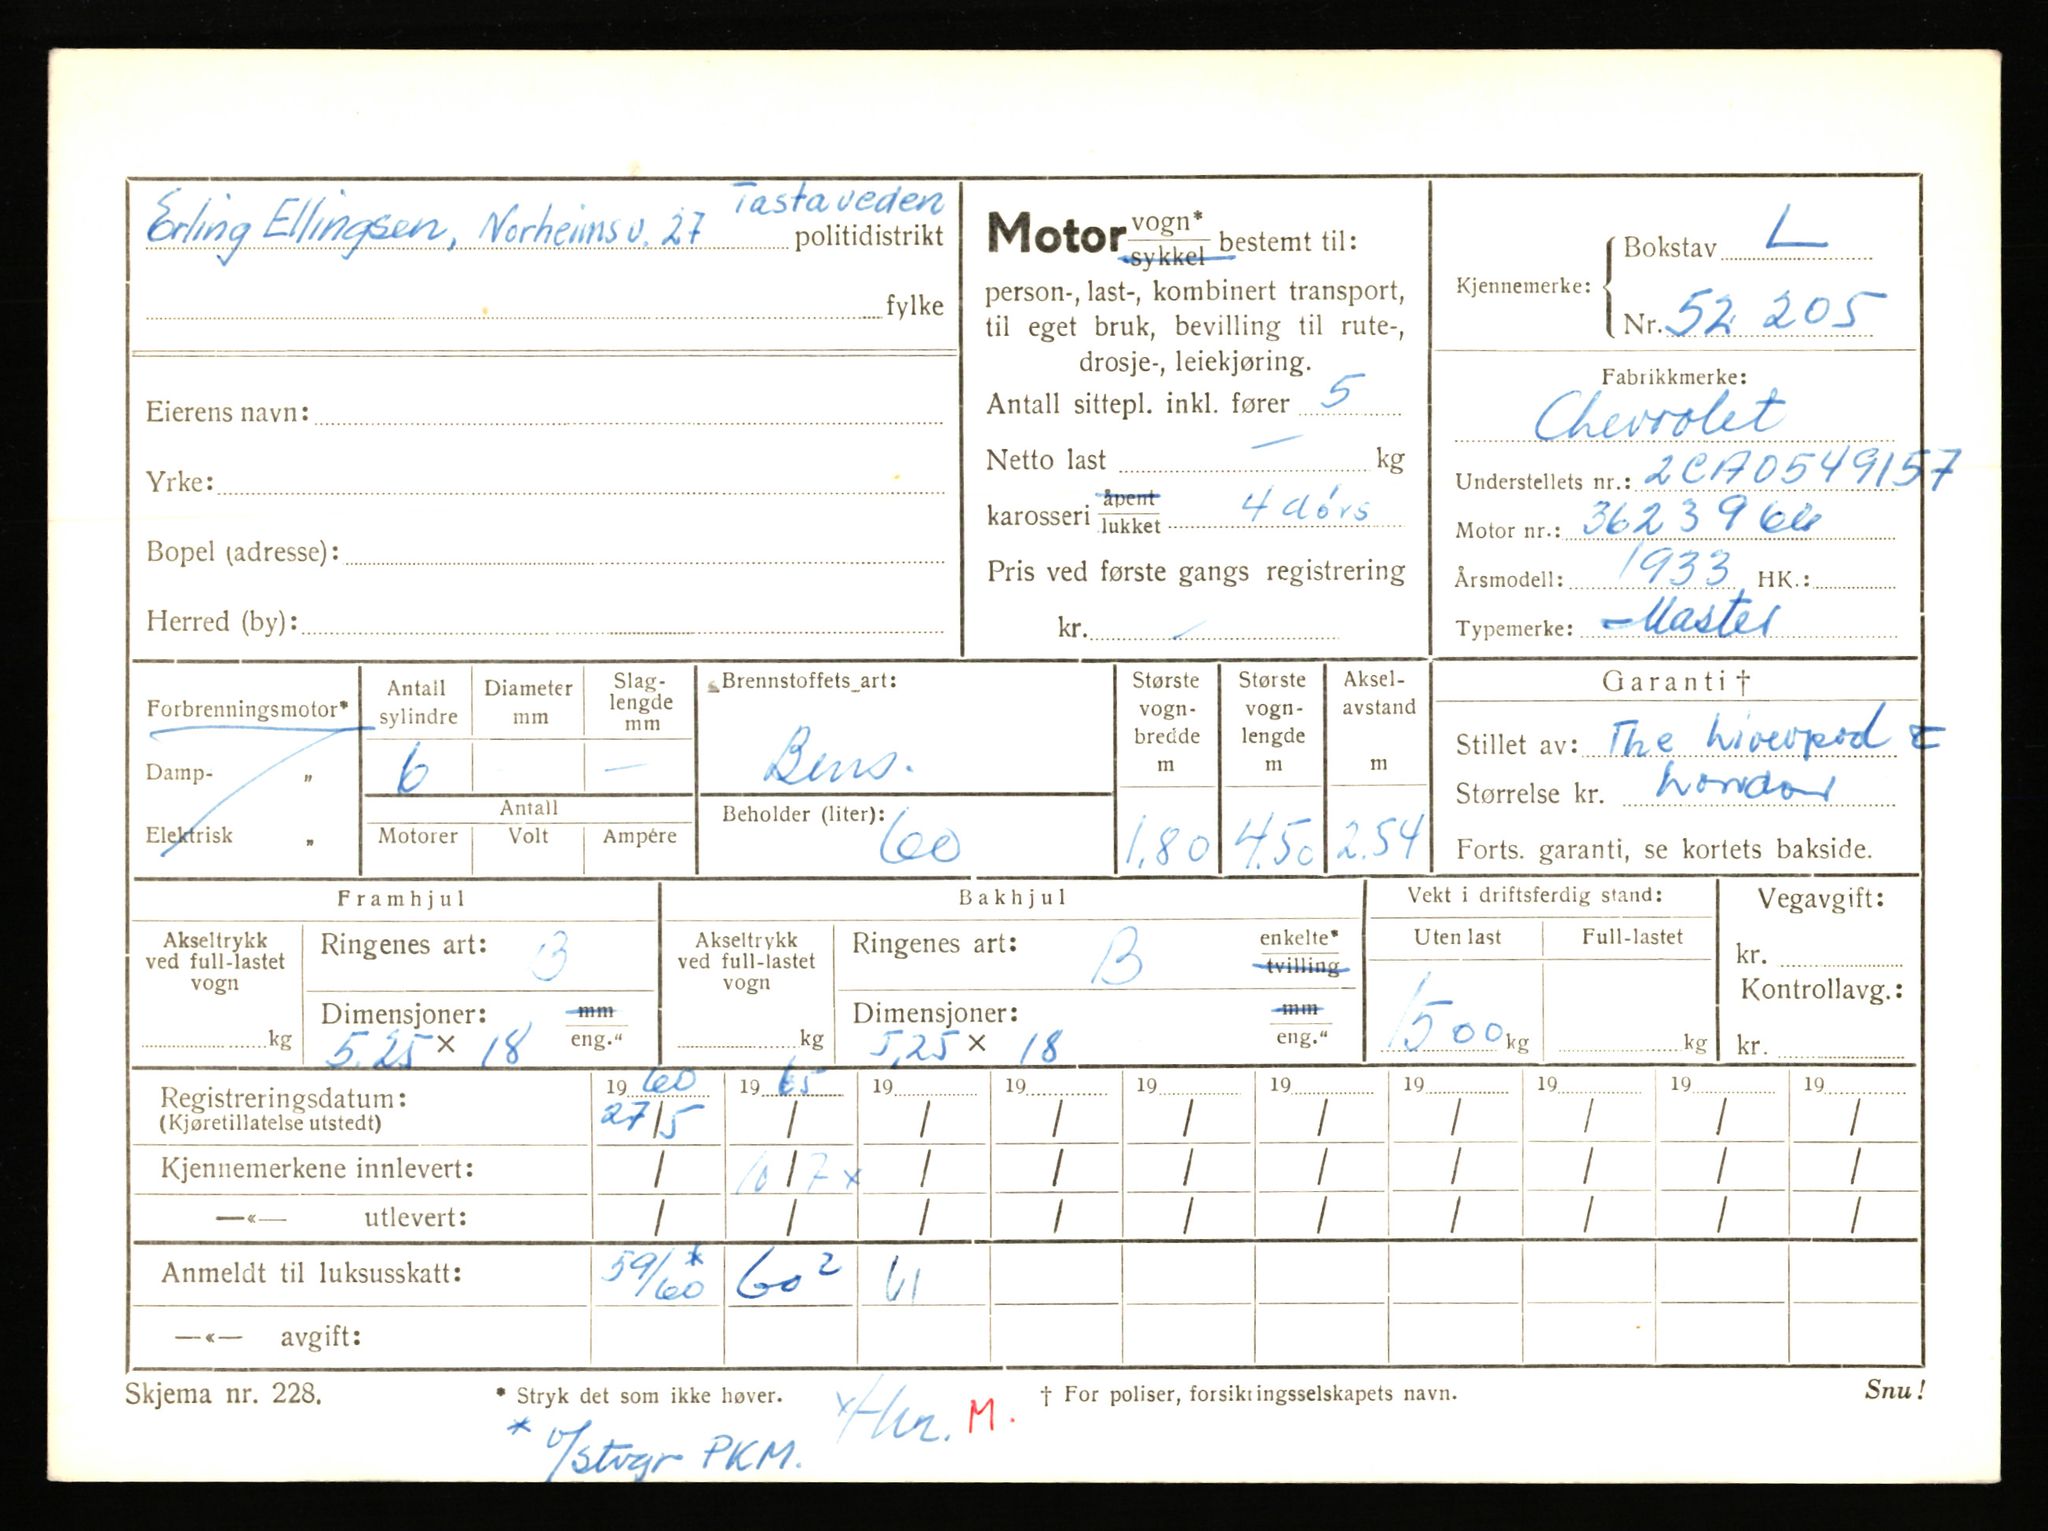 Tastaveden
Erling Ellingsen, Norheimsv. 27 politidistrikt
fylke
Eierens navn:
Yrke:
Bopel (adresse):
Herred (by):
Motor vogn* sykkel bestemt til:
person-, last-, kombinert transport,
til eget bruk, bevilling til rute-,
drosje-, leiekjøring.
Antall sittepl. inkl. fører 5
Netto last — kg
karosseri åpent lukket 4 dørs
Pris ved første gangs registrering
kr. —
Kjennemerke: Bokstav L
Nr. 52 205
Fabrikkmerke:
Chevrolet
Understellets nr.: 2CA0549157
Motor nr.: 3623966
Årsmodell: 1933 HK.:
Typemerke: Master
Forbrenningsmotor*
Damp- „
Elektrisk „
Antall sylindre
Diameter mm
Slag-lengde mm
6 —
Antall
Motorer Volt Ampére
Brennstoffets art:
Bens.
Beholder (liter):
60
Største vogn-bredde m
1.80
Største vogn-lengde m
4.50
Aksel-avstand m
2.54
Garanti †
Stillet av: The Liverpool &
Størrelse kr. London
Forts. garanti, se kortets bakside.
Framhjul
Akseltrykk ved full-lastet vogn
kg
Ringenes art: B
Dimensjoner: mm
5.25 × 18 eng."
Bakhjul
Akseltrykk ved full-lastet vogn
kg
Ringenes art: B enkelte* tvilling
Dimensjoner: mm
5,25 × 18 eng."
Vekt i driftsferdig stand:
Uten last Full-lastet
1500 kg kg
Vegavgift:
kr.
Kontrollavg.:
kr.
Registreringsdatum: 19 60 19 65 19 19 19 19 19 19 19 19
(Kjøretillatelse utstedt) 27/5 / / / / / / / / /
Kjennemerkene innlevert: / 10/7 x / / / / / / / /
—«— utlevert: / / / / / / / / / /
Anmeldt til luksusskatt: 59/60 * 60² 61
—«— avgift:
Skjema nr. 228. * Stryk det som ikke høver. † For poliser, forsikringsselskapets navn. Snu!
M.
* v/stvgr PKM.